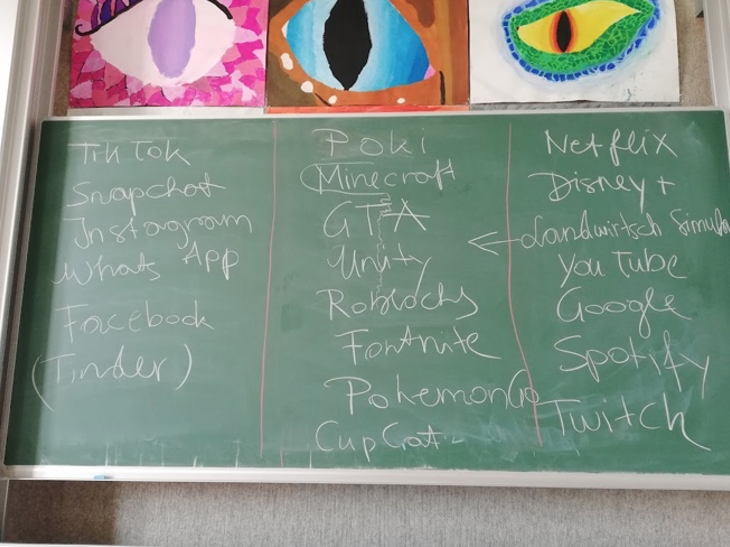 Tik Tok
Snapchat
Instagram
Whats App
Facebook
(Tinder)
Poki
Minecraft
GTA
Unity
Roblocks
Fortnite
PokemonGo
Netflix
Disney+
Landwirtsch Simula
You Tube
Google
Spotify
Twitch